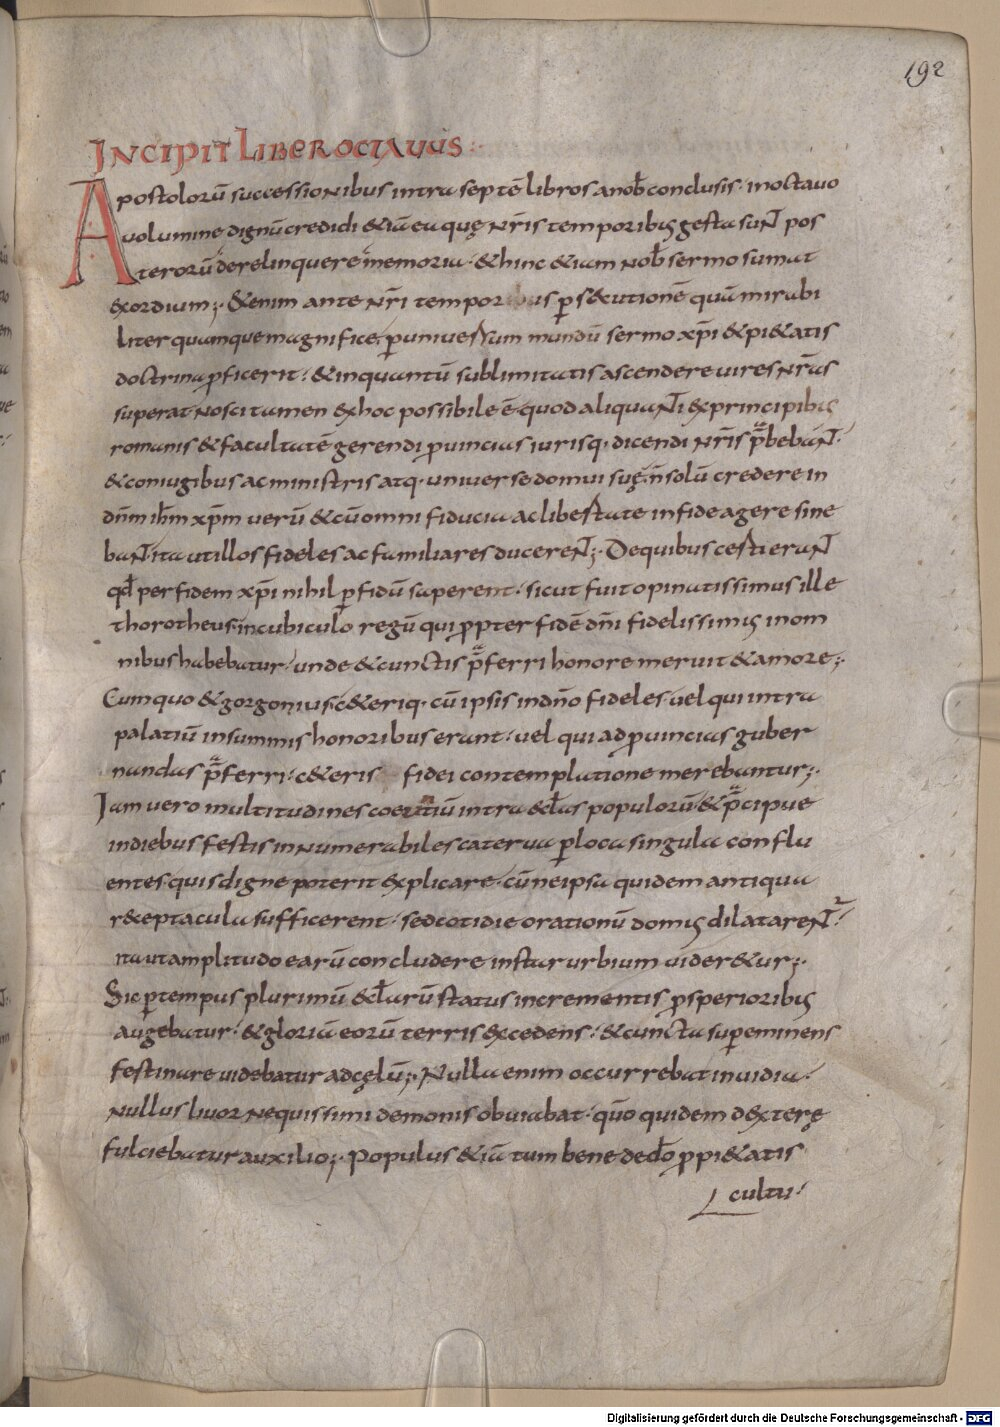 192
INCIPIT LIBER OCTAVUS
Apostolorū successionibus intra septē libros a nob̄ conclusis · in octauo
uolumine dignū credidi &iā ea quę nr̄is temporibꝰ gesta suNT pos
terorū derelinquere memoria · & hinc &iam nob̄ sermo sumat
exordium ;· &enim ante nr̄i temporibus ꝑs&utionē quā mirabi
liter quamque magnifice ꝑ uniuersum mundū sermo xp̄i & pi&atis
doctrina ꝓficerit · & in quantū sublimitatis ascendere uires nr̄as
superat Nosci tamen ex hoc possibile ē quod aliquaNTi ex principibꝰ
romanis & facultatē gerendi ꝓuincias iurisq· dicendi nr̄is p̄bebaNT ·
& coniugibus ac ministris atq· uniuerse domui suę · n̄ solū credere in
dn̄m ih̄m xp̄m uerū & cū omni fiducia ac libertate in fide agere sine
baNT · ita ut illos fideles ac familiares ducereNT ;· De quibus certi eraNT
qd̄ per fidem xp̄i nihil ꝑfidū saperent · sicut fuit opinatissimus ille
thorotheus · in cubiculo regū qui ꝓpter fidē dn̄i fidelissimꝰ in om
nibus habebatur · unde & cunctis p̄ferri honore meruit & amore ;·
Cum quo & gorgonius · c&eriq· cū ipsis in dn̄o fideles · uel qui intra
palatiū in summis honoribus erant · uel qui ad ꝓuincias guber
nandas p̄ferri · c&eris fidei contemplatione merebantur ;·
Iam uero multitudines coeuntiū intra eccl̄as populorū & p̄cipue
in diebus festis innumerabiles caterua ꝑ loca singula conflu
entes · quis digne poterit explicare · cū ne ipsa quidem antiqua
receptacula sufficerent · sed cotidie orationū domꝰ dilatareNTᷣ ·
ita ut amplitudo earū concludere instar urbium uider&ur ;·
Sic ꝑ tempus plurimū eccl̄arū status incrementis ꝓsperioribꝰ
augebatur · & gloriā eorū terris excedens · & cuncta suꝑeminens
festinare uidebatur ad cęlū ;· Nulla enim occurrebat inuidia ·
nullus liuor nequissimi demonis obuiabat · quō quidem dexterę
fulciebatur auxilio ;· Populus &iā tum bene de dō ꝓ pi&atis
cultu ·
Digitalisierung gefördert durch die Deutsche Forschungsgemeinschaft - DFG